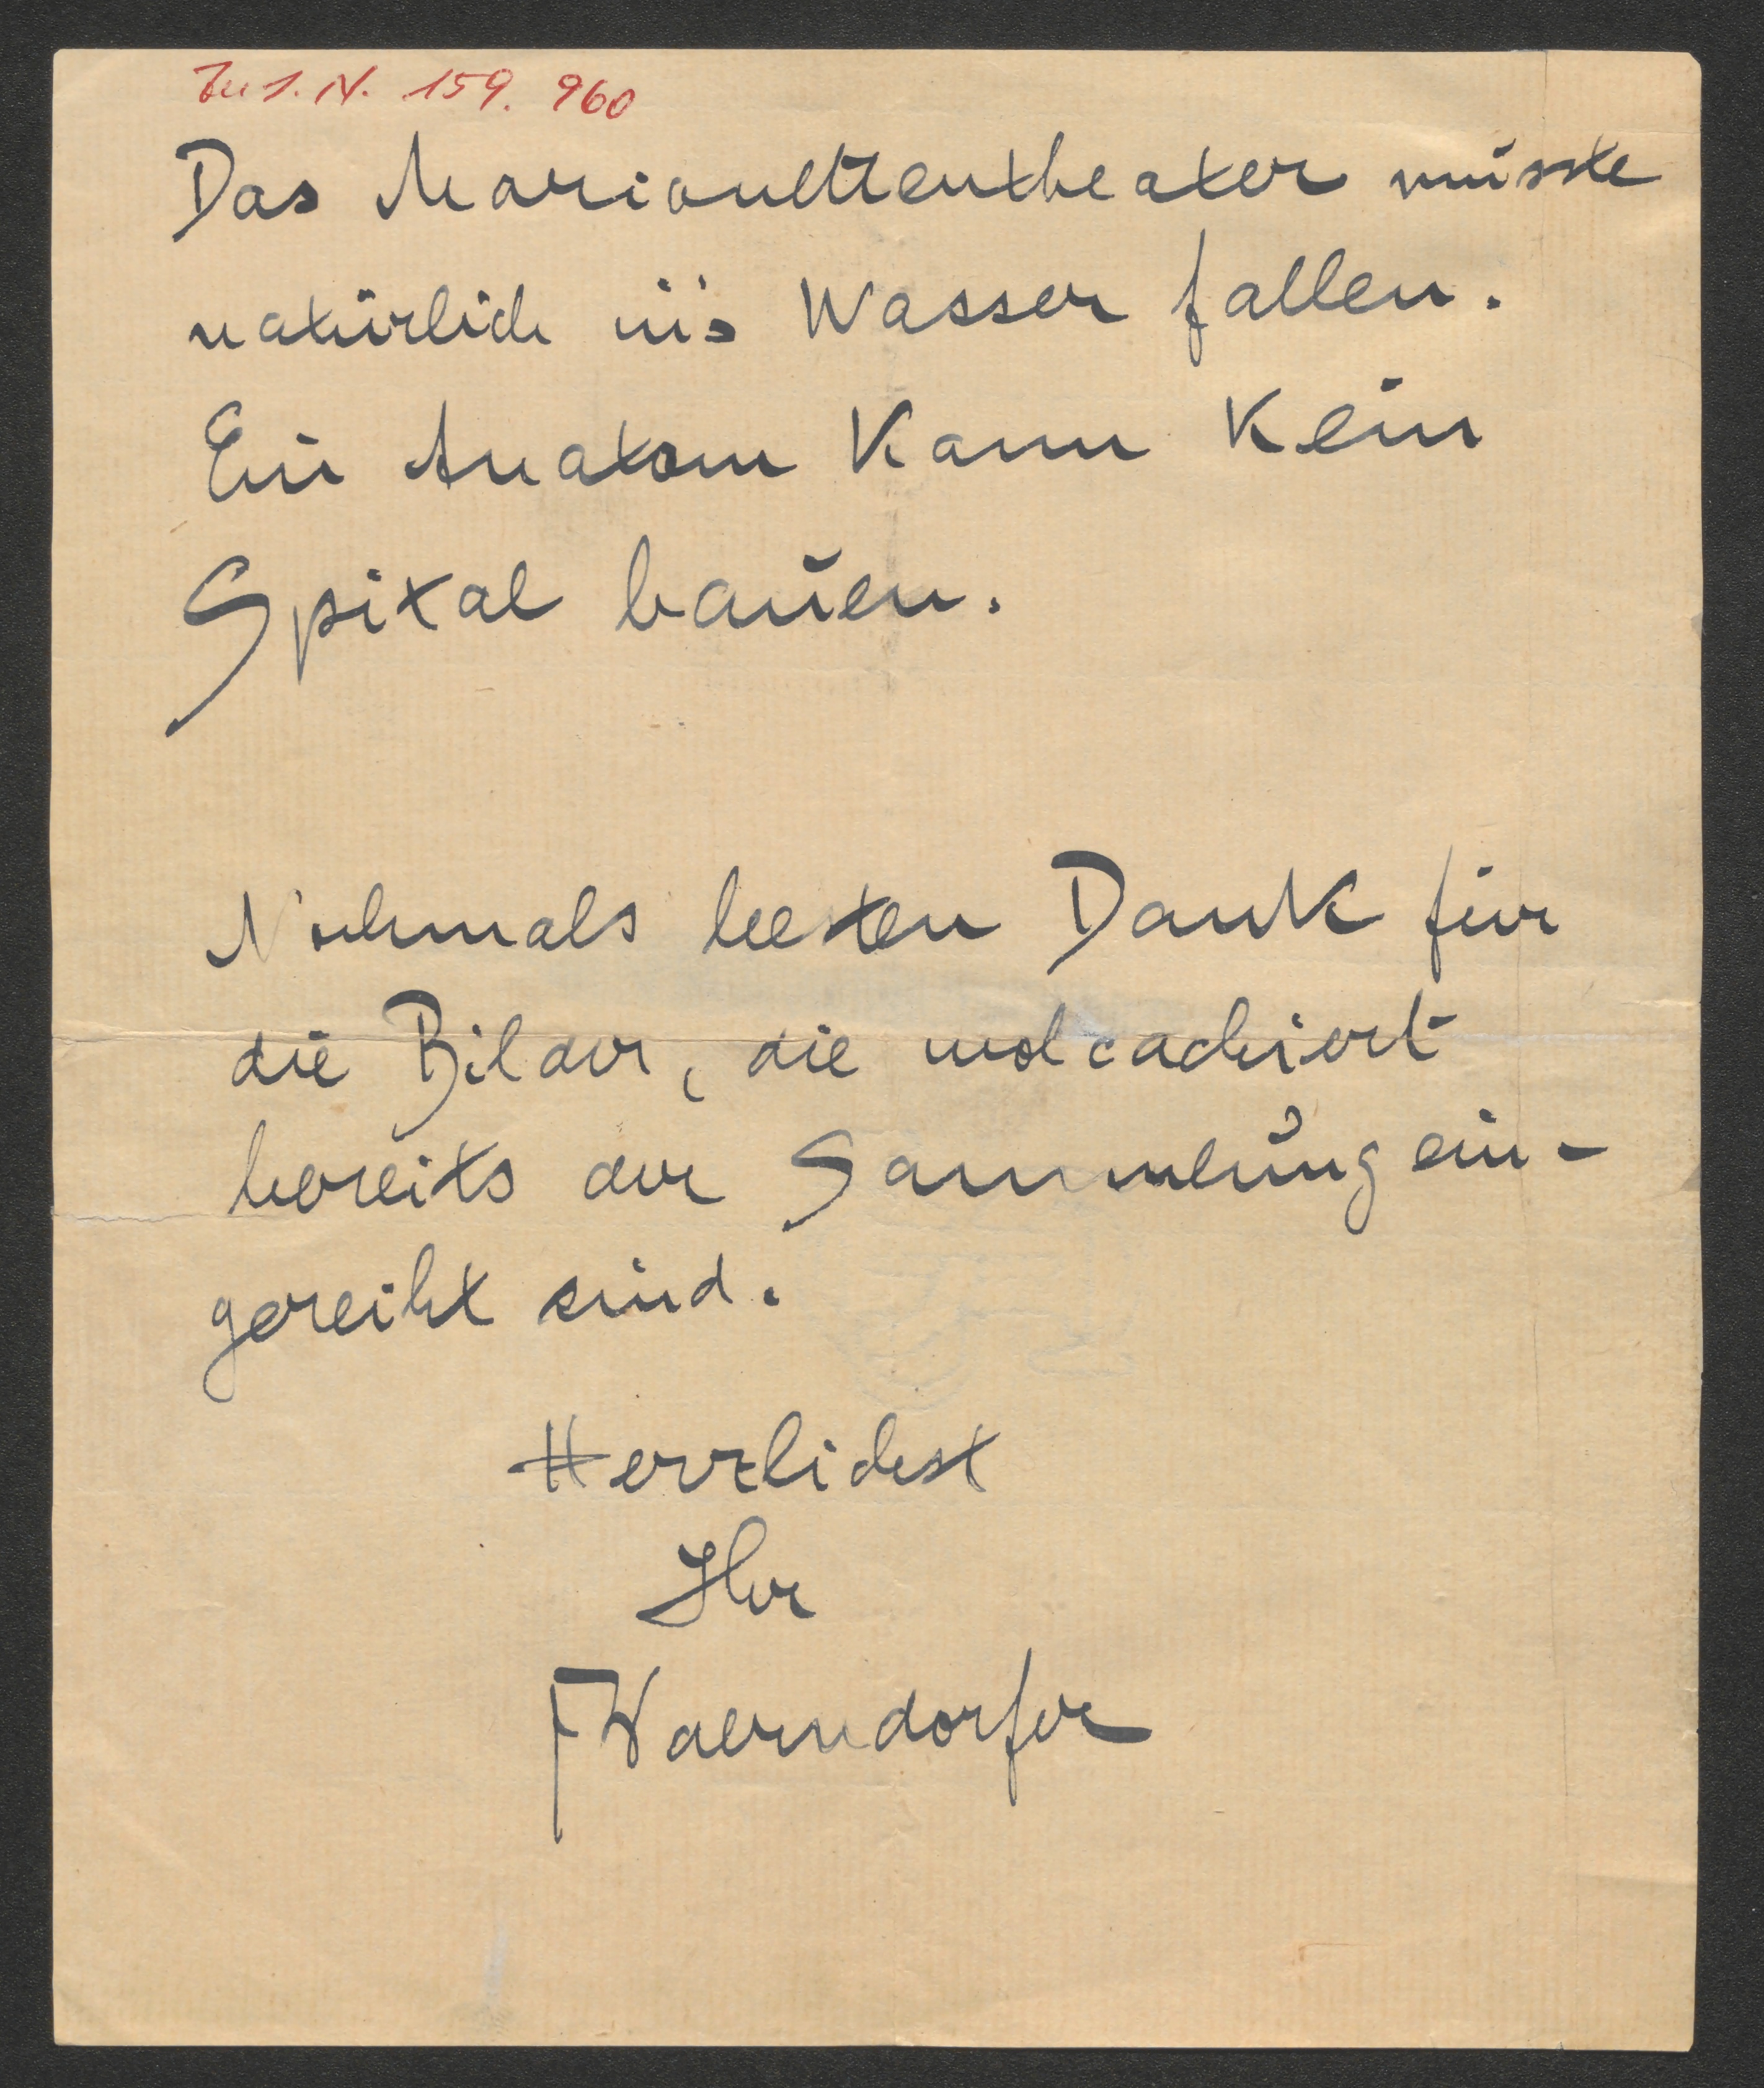 Zu I. N. 159.960
Das Marionettentheater müsste
natürlich in's Wasser fallen.
Ein Anatom kann kein
Spital bauen.
Nochmals besten Dank für
die Bilder, die wol cachiert
bereits der Sammlung ein-
gereiht sind.
Herzlichst
Ihr
FWaerndorfer